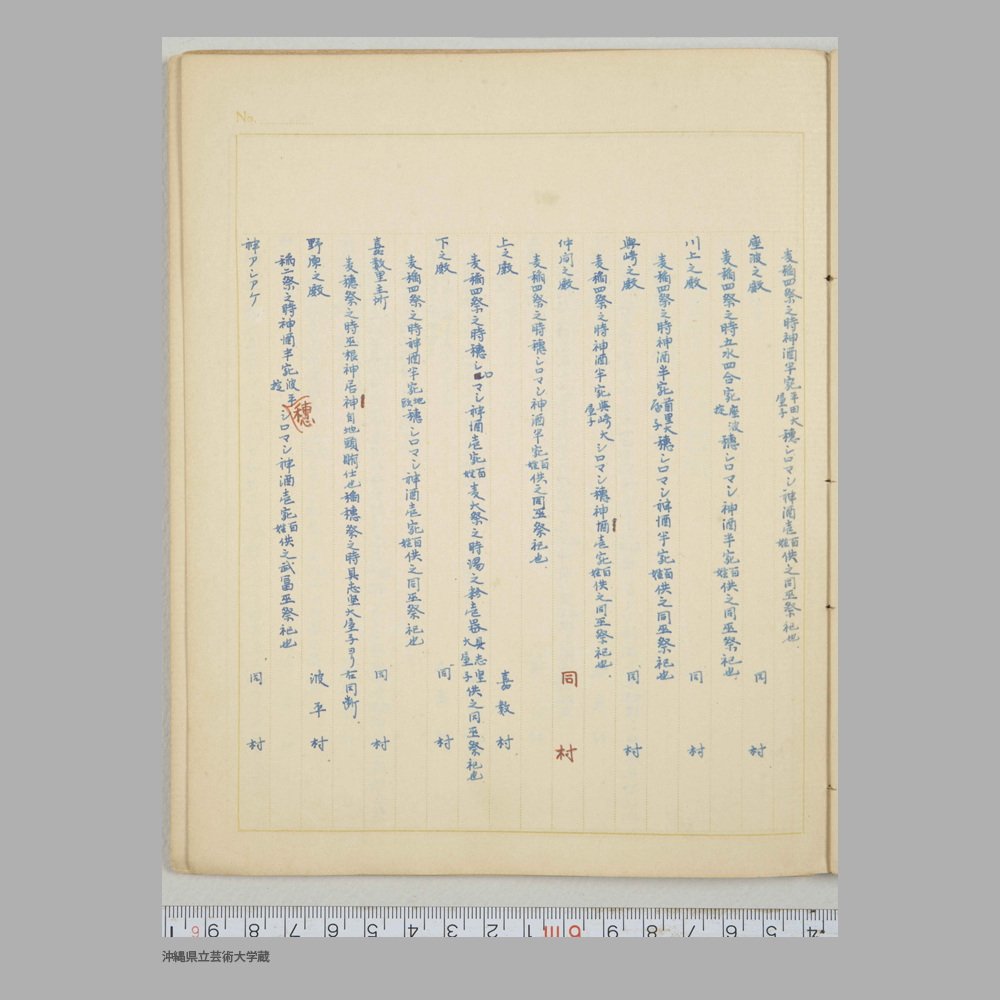 No.
麦稲四祭之時神酒半宛平田大屋子穂シロマシ神酒壱宛百姓供之同巫祭祀也
座波之殿 同村
麦稲四祭之時五水四合宛座波掟穂シロマシ神酒半宛百姓供之同巫祭祀也
川上之殿 同村
麦稲四祭之時神酒半宛首里大屋子穂シロマシ神酒半宛百姓供之同巫祭祀也
與崎之殿 同村
麦稲四祭之時神酒半宛與崎大屋子シロマシ穂神酒壱宛百姓供之同巫祭祀也
仲間之殿 同村
麦稲四祭之時穂シロマシ神酒半宛百姓供之同巫祭祀也
上之殿 嘉数村
麦稲四祭之時穂シロマシ神酒壱宛百姓麦大祭之時湯之粉壱器具志堅大屋子供之同巫祭祀也
下之殿 同村
麦稲四祭之時神酒半宛地頭穂シロマシ神酒壱宛百姓供之同巫祭祀也
嘉数里主所 同村
麦穂祭之時巫根神居神自地頭賄仕也稲穂祭之時具志堅大屋子ヨリ右同断
野原之殿 波平村
稲二祭之時神酒半宛波平掟穂シロマシ神酒壱宛百姓供之武冨巫祭祀也
神アシアゲ 同村
沖縄県立芸術大学蔵